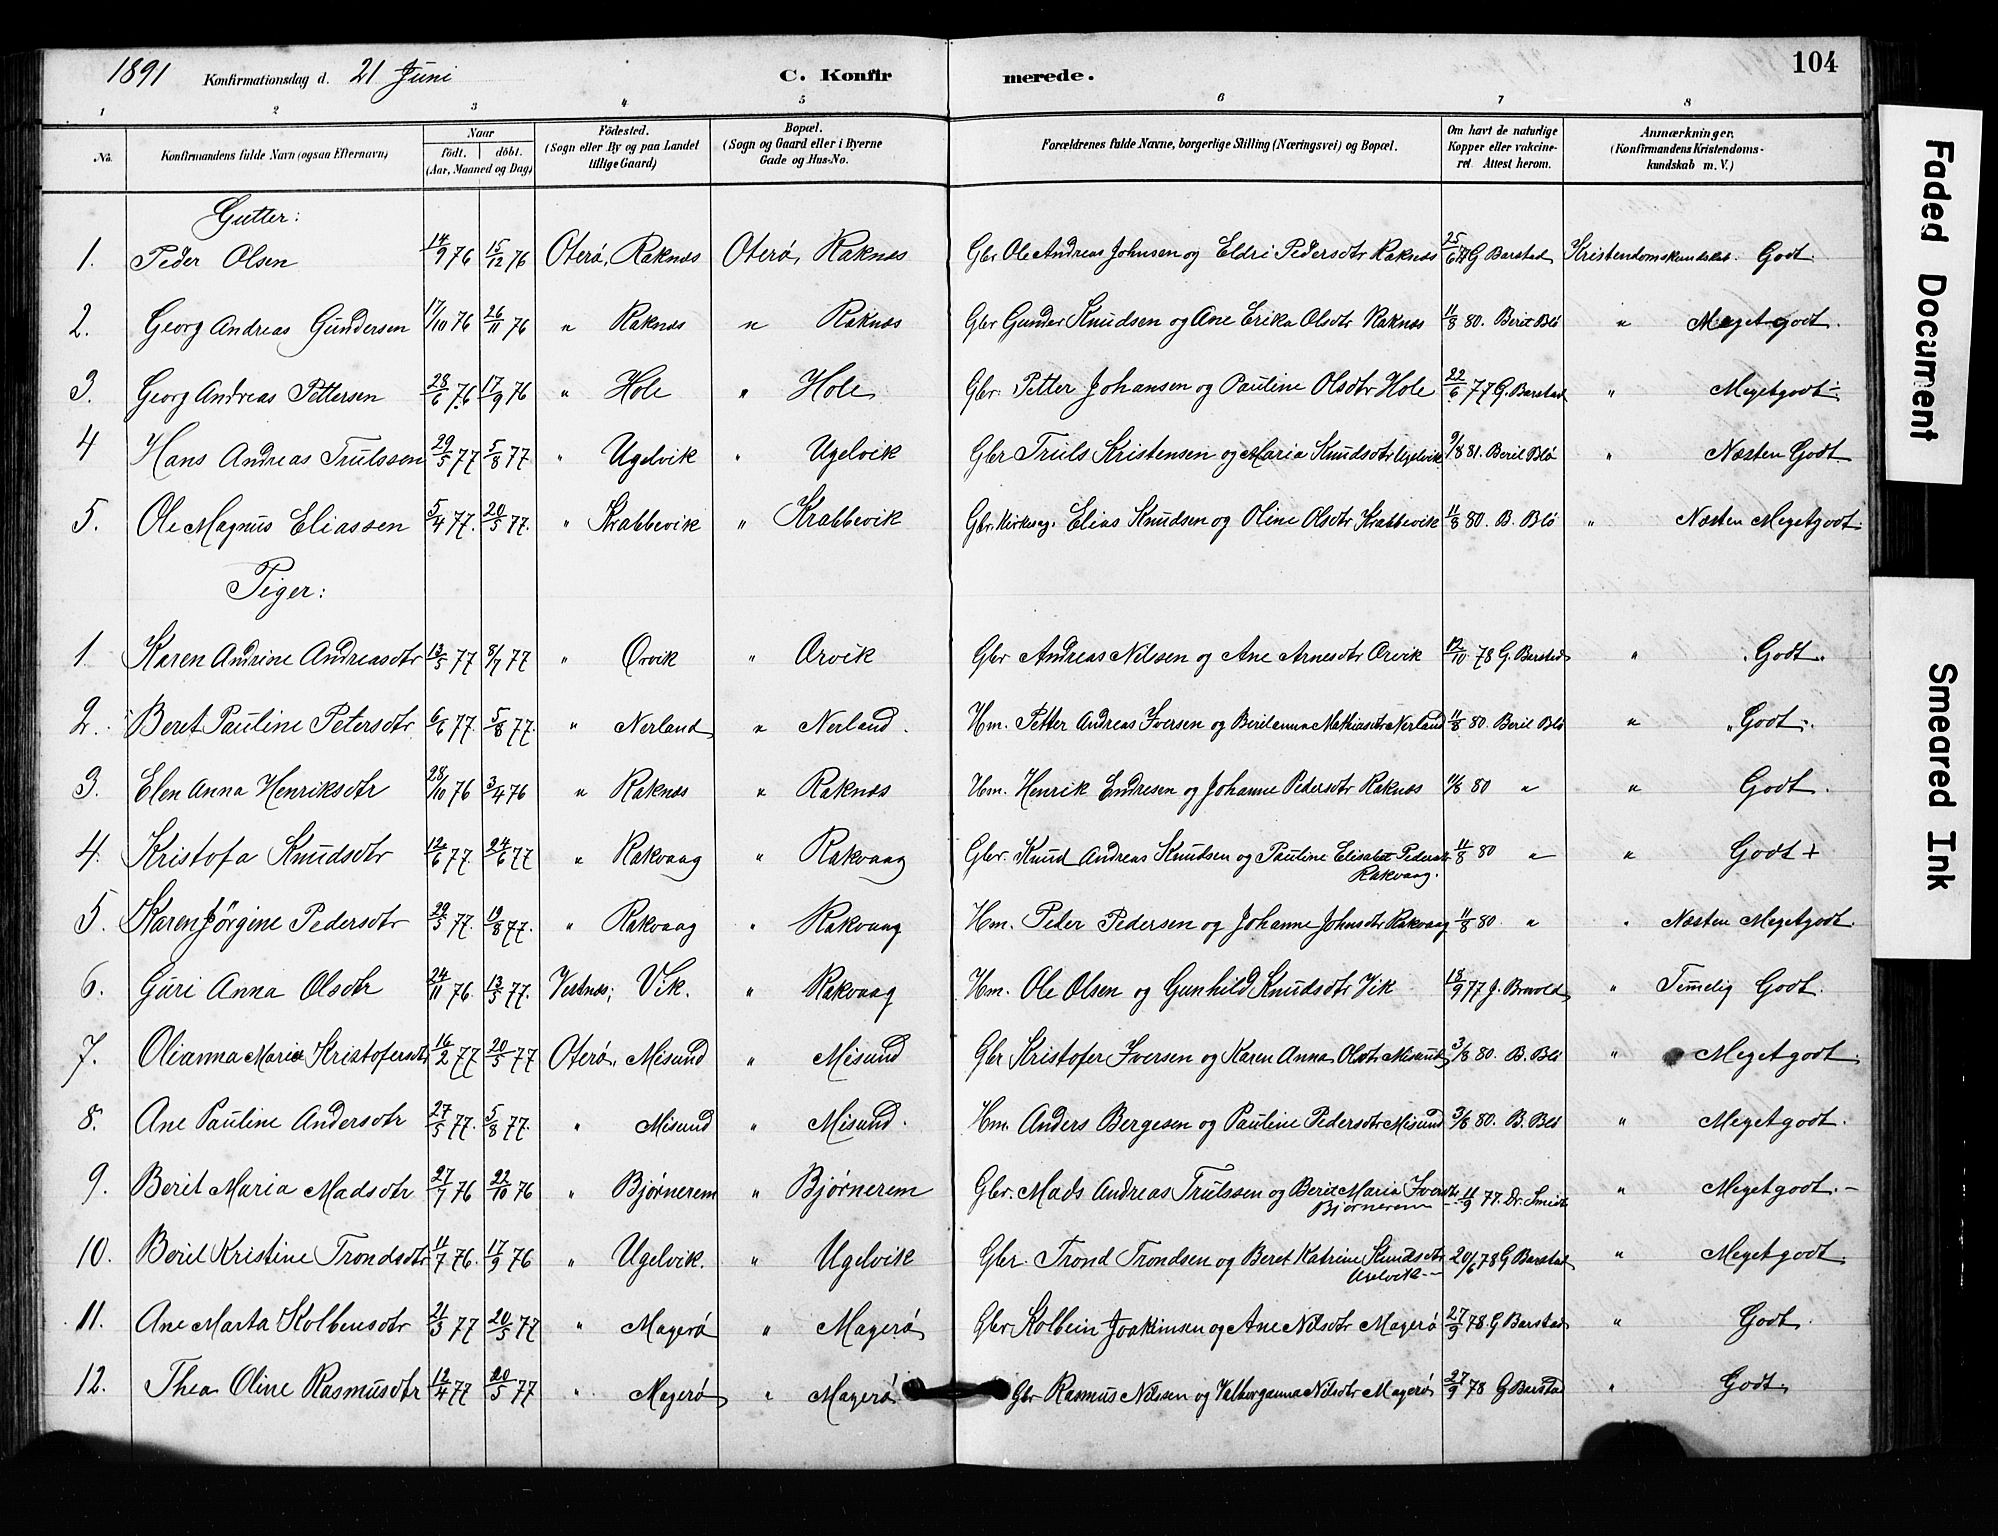 1891 Konfirmationsdag d. 21 Juni C. Konfirmerede. 104
1 2 3 4 5 6 7 8
No. Konfirmandens fulde Navn (ogsaa Efternavn) Naar født. døbt. (Aar, Maaned og Dag) Födested. (Sogn eller By og paa Landet tillige Gaard) Bopæl. (Sogn og Gaard eller i Byerne Gade og Hus-No. Forældrenes fulde Navne, borgerlige Stilling (Næringsvei) og Bopæl. Om havt de naturlige Kopper eller vaccineret. Attest herom. Anmærkninger. (Konfirmandens Kristendomskundskab m. V.)
Gutter:
1. Peder Olsen 14/9 76 15/12 76 Oterø, Raknæs Oterø, Raknæs Gbr Ole Andreas Johnsen og Eldri Pedersdtr Raknæs 25/6 77 G Barstad Kristendomskundskab. Godt.
2. Georg Andreas Gundersen 17/10 76 26/11 76 " Raknæs " Raknæs Gbr Gunder Knudsen og Ane Erika Olsdtr Raknæs 11/8 80. Berit Blø " Megetgodt.
3. Georg Andreas Pettersen 28/6 76 17/9 76 " Hole " Hole Gbr. Petter Johansen og Pauline Olsdtr Hole 22/6 77 G. Barstad " Megetgodt÷
4 Hans Andreas Trulssen 29/5 77 5/8 77 " Ugelvik " Ugelvik Gbr Truls Kristensen og Maria Knudsdtr Ugelvik 9/8 81. Beril Blø " Næsten Godt.
5. Ole Magnus Eliassen 5/4 77. 20/5 77. " Krabbevik " Krabbevik Gbr. Kirkesg. Elias Knudsen og Oline Olsdtr Krabbevik 11/8 80. B. Blø " Næsten Megetgodt.
Piger:
1. Karen Andrine Andreasdtr 13/5 77 8/7 77 " Orvik " Orvik Gbr Andreas Nilsen og Ane Arnesdtr Orvik 12/10 78 G. Barstad " Godt.
2. Beret Pauline Petersdtr 6/6 77. 5/8 77. " Nerland " Nerland. Hm. Petter Andreas Iversen og Beritanna Mathiasdtr Nerland 11/8 80. Beril Blø " Godt.
3. Elen Anna Henriksdtr 28/10 76 3/4 76 " Raknæs " Raknæs Hm. Henrik Endresen og Johanne Pedersdtr Raknæs 11/8 80 " " Godt.
4. Kristofa Knudsdtr 12/6 77. 24/6 77 " Rakvaag " Rakvaag Gbr. Knud Andreas Knudsen og Pauline Elisabet Pedersdtr 11/8 80 " " Godt +
Rakvaag.
5. Karen Jörgine Pedersdtr 29/5 77. 19/8 77. " Rakvaag " Rakvaag Hm. Peder Pedersen og Johanne Johnsdtr Rakvaag 11/8 80 " " Næsten Megetgodt.
6. Guri Anna Olsdtr 24/11 76. 13/5 77. Vestnæs; Vik. " Rakvaag Hm. Ole Olsen og Gunhild Knudsdtr Vik 18/9 77 J. Brovold " Temelig Godt.
7. Olianna Maria Kristofersdtr 16/2 77 20/5 77 Oterø, Misund " Misund Gbr Kristofer Iversen og Karen Anna Olsdtr Misund 3/8 80. B. Blø " Megetgodt.
8. Ane Pauline Andersdtr 27/5 77. 5/8 77. " Misund " Misund. Hm. Anders Bergesen og Pauline Pedersdtr Misund 3/8 80. B. Blø " Megetgodt.
9. Berit Maria Madsdtr 27/7 76 22/10 76 " Bjørnerem " Bjørnerem Gbr. Mads Andreas Trulssen og Berit Maria Iversdtr 11/9 77. Dr. Smidt " Megetgodt.-
Bjørnerem
10. Beril Kristine Trondsdtr 11/7 76. 17/9 76 " Ugelvik. " Ugelvik Gbr. Trond Trondsen og Beret Katrine Knudsdtr 20/6 78 G Barstad " Megetgodt.
Ugelvik--
11. Ane Marta Kolbensdtr 21/3 77 20/5 77 " Magerø " Magerø Gbr Kolbein Joakimsen og Ane Nilsdtr Magerø 27/9 78. G Barstad " Godt.
12. Thea Oline Rasmusdtr 12/4 77 20/5 77 " Magerø " Magerø Gbr Rasmus Nilssen og Valborganna Nilsdtr Magerø 27/9 78 G Barstad " Godt.
Faded Document
Smeared Ink